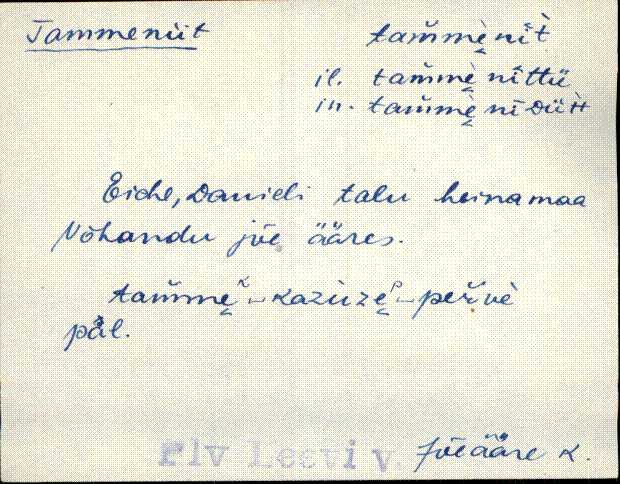 Tammeniit tam̆mè̬ nīt̀
il. tam̆mè̬ nīttü
in. tam̆mè̬ nīDüH
Eiche, Danieli talu heinamaa
Võhandu jõe ääres.
tam̆me̬ᴷ-kazuze̬ᴾ-per̆vè
pǟl.
rlv Leevi v. Jõeääre k.